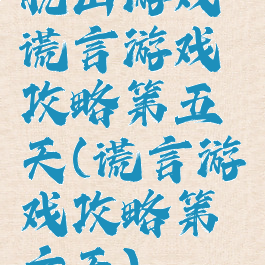 谎言游戏
攻略第五
天(谎言游
戏攻略第